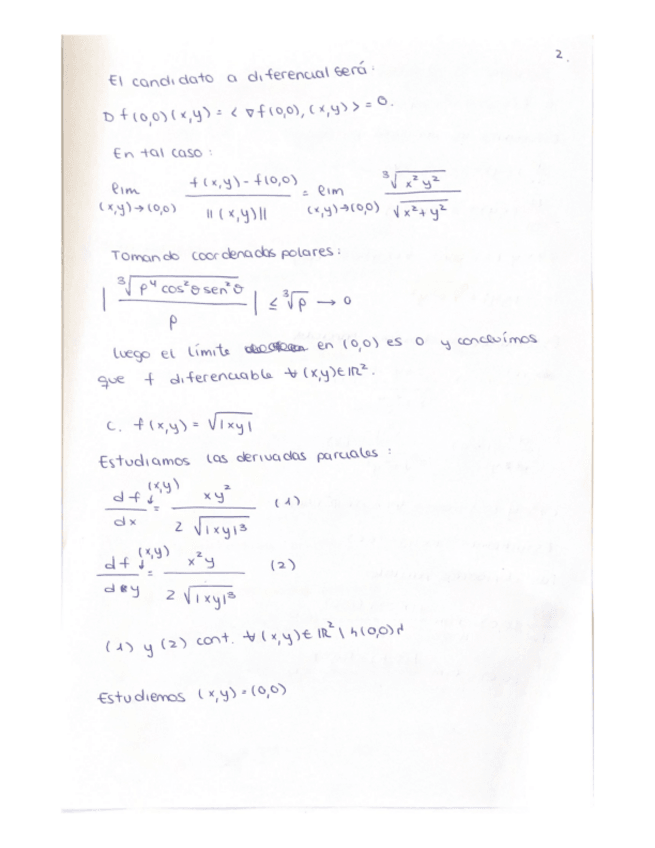 2.
El candidato a diferencial será.
D f(0,0)(x,y) = < ∇f(0,0), (x,y) > = 0.
En tal caso:
lim (x,y)→(0,0) f(x,y) - f(0,0) / ||(x,y)|| = lim (x,y)→(0,0) ∛(x²y²) / √(x²+y²)
Tomando coordenadas polares:
| ∛(ρ⁴ cos²θ sen²θ) / ρ | ≤ ∛ρ → 0
luego el límite en (0,0) es 0 y concluímos
que f diferenciable ∀(x,y)∈ℝ².
C. f(x,y) = √|xy|
Estudiamos las derivadas parciales:
df/dx (x,y) = xy² / 2√|xy|³ (1)
df/dy (x,y) = x²y / 2√|xy|³ (2)
(1) y (2) cont. ∀(x,y)∈ℝ² \ {(0,0)}
Estudiemos (x,y) = (0,0)